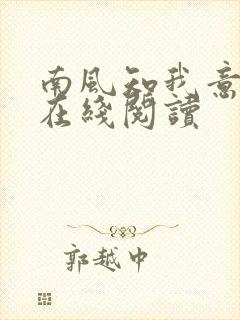 南風知我意
在綫閱讀
郭越中